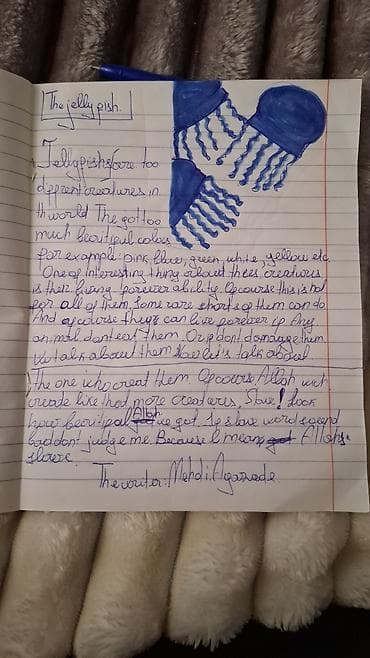 The jelly pish.
Jellypishs are too
dpprent creatures in
th world The got too
much beautiful colors
por example: pink, blue, green, white, yellow etc
One of interesting thing about thees creatures
is their living porever ability. Opcourse this is not
por all of them. Some rare shorts of them can do
And opcourse they can live porever ip Any
animal dont eat them. Or ip dont damage them.
We talk about them Now let's talk about
The one who creat them. Opcourse Allah
create like that more creatures. Slave! Look
how beautipul Allah we got. Is slave word sound
bad dont judge me. Because I mean Allahs
slave.
The writer: Mehdi Agazzade